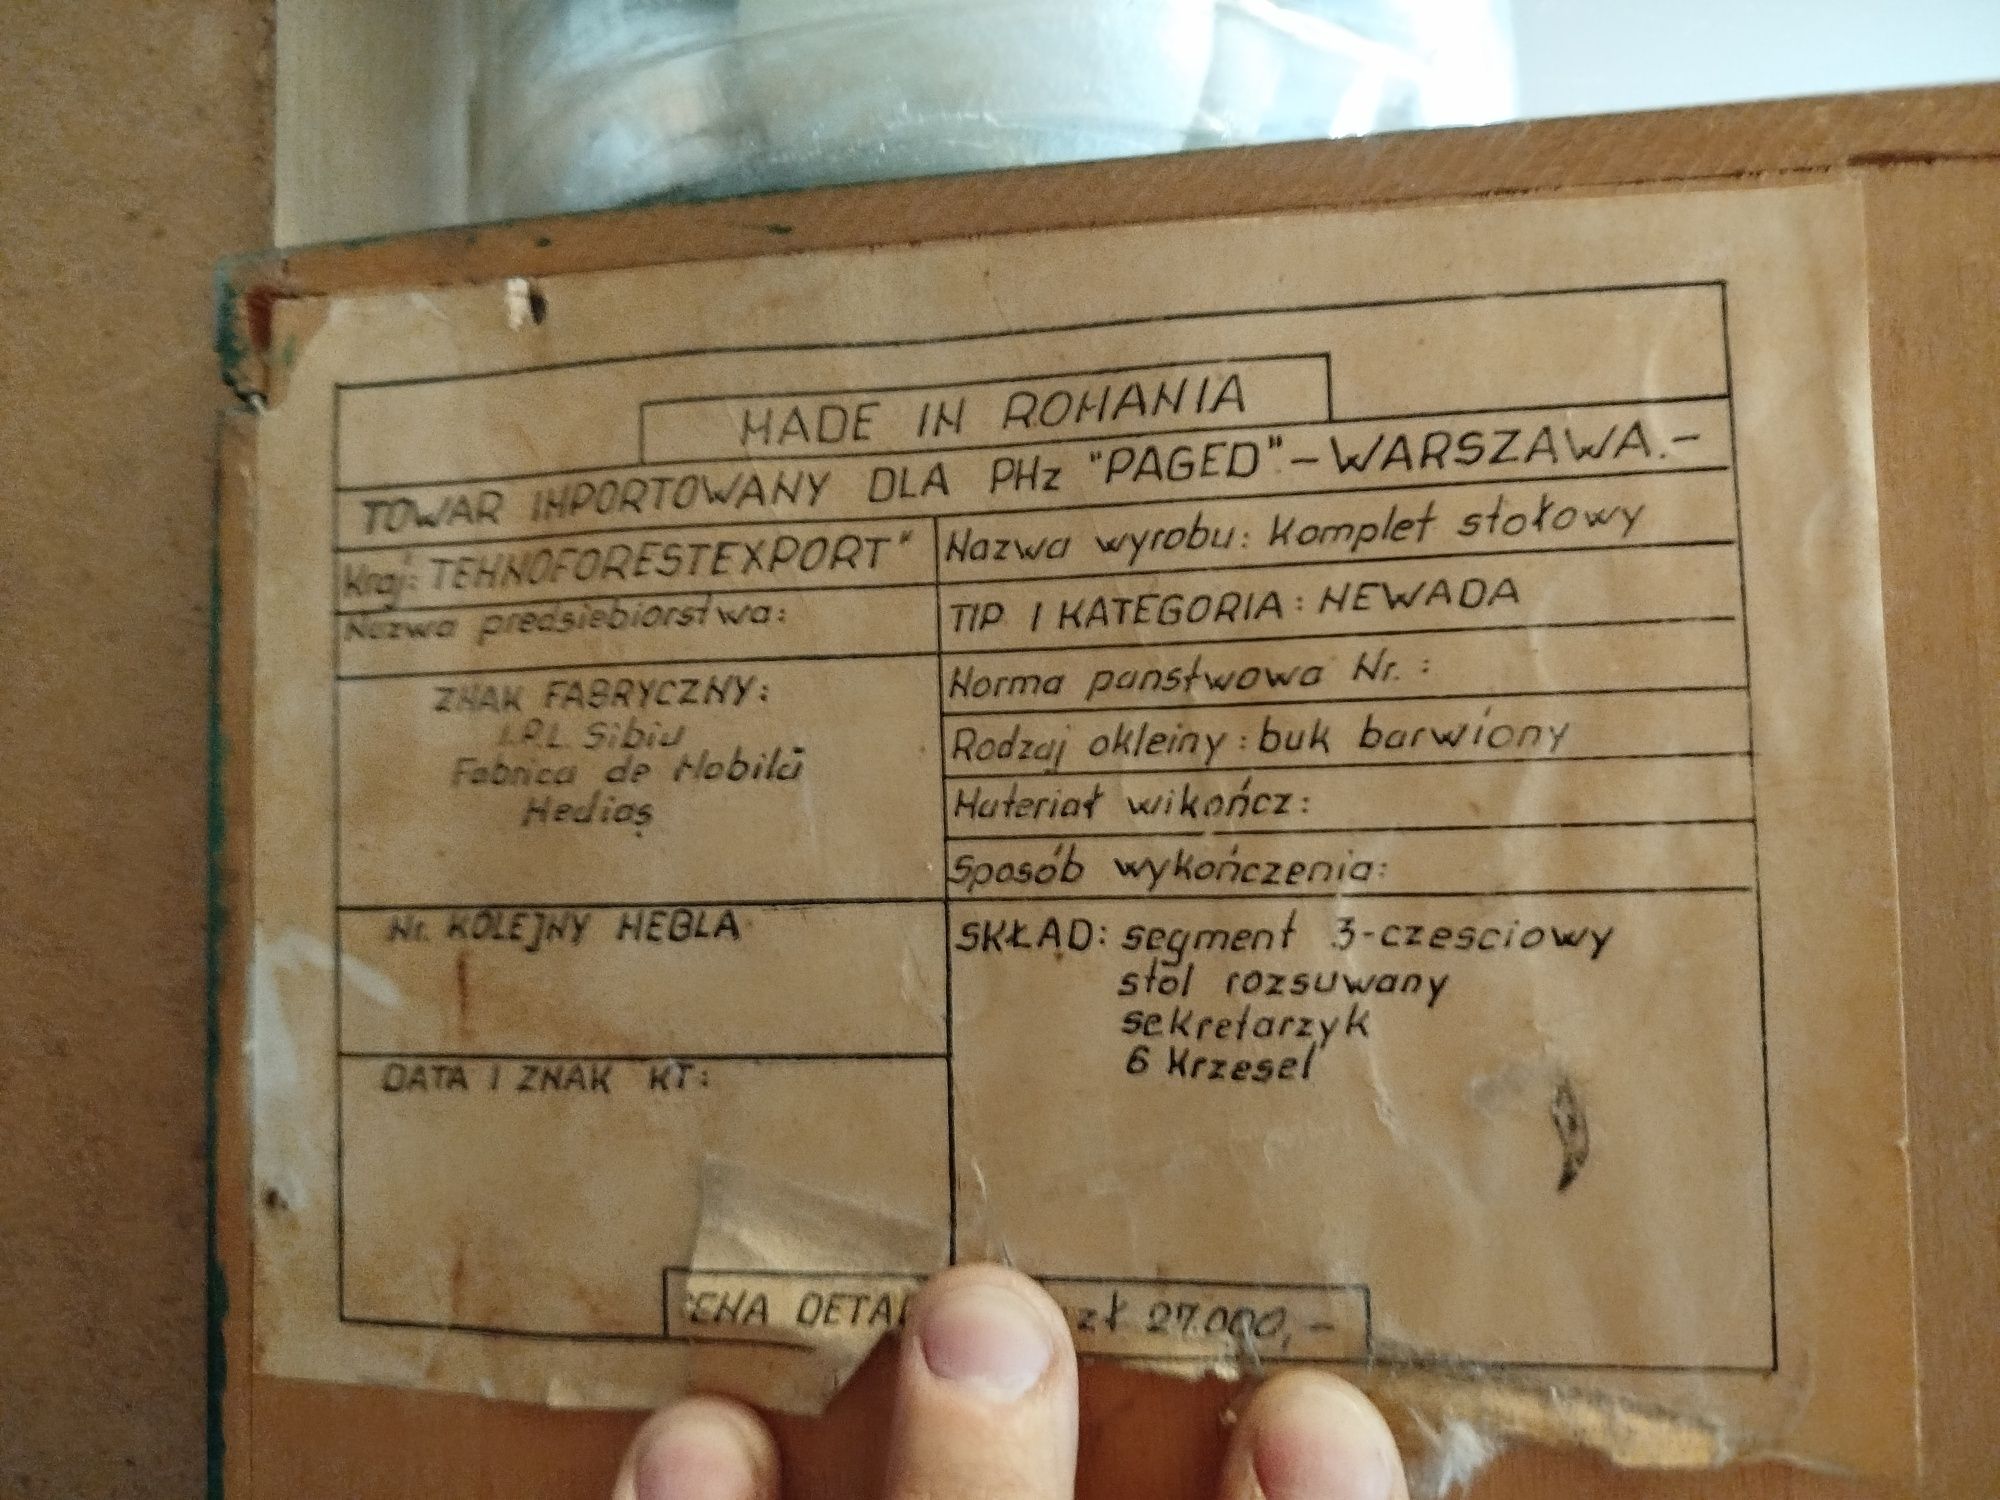 MADE IN ROMANIA
TOWAR IMPORTOWANY DLA PHz "PAGED" - WARSZAWA.-
Kraj: TEHNOFORESTEXPORT"
Nazwa predsiebiorstwa:
ZNAK FABRYCZNY:
I.P.L. Sibiu
Fabrica de Mobilă
Mediaș
Nr. KOLEJNY MEBLA
DATA I ZNAK KT:
Nazwa wyrobu: Komplet stołowy
TIP I KATEGORIA: NEWADA
Norma panstwowa Nr. :
Rodzaj okleiny: buk barwiony
Materiał wikończ:
Sposób wykończenia:
SKŁAD: segment 3-czesciowy
stol rozsuwany
sekretarzyk
6 Krzesel
CENA DETAL zł 27.000,-